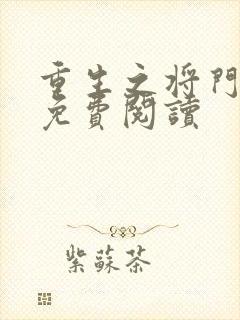 重生之将門
免費閱讀
紫蘇茶